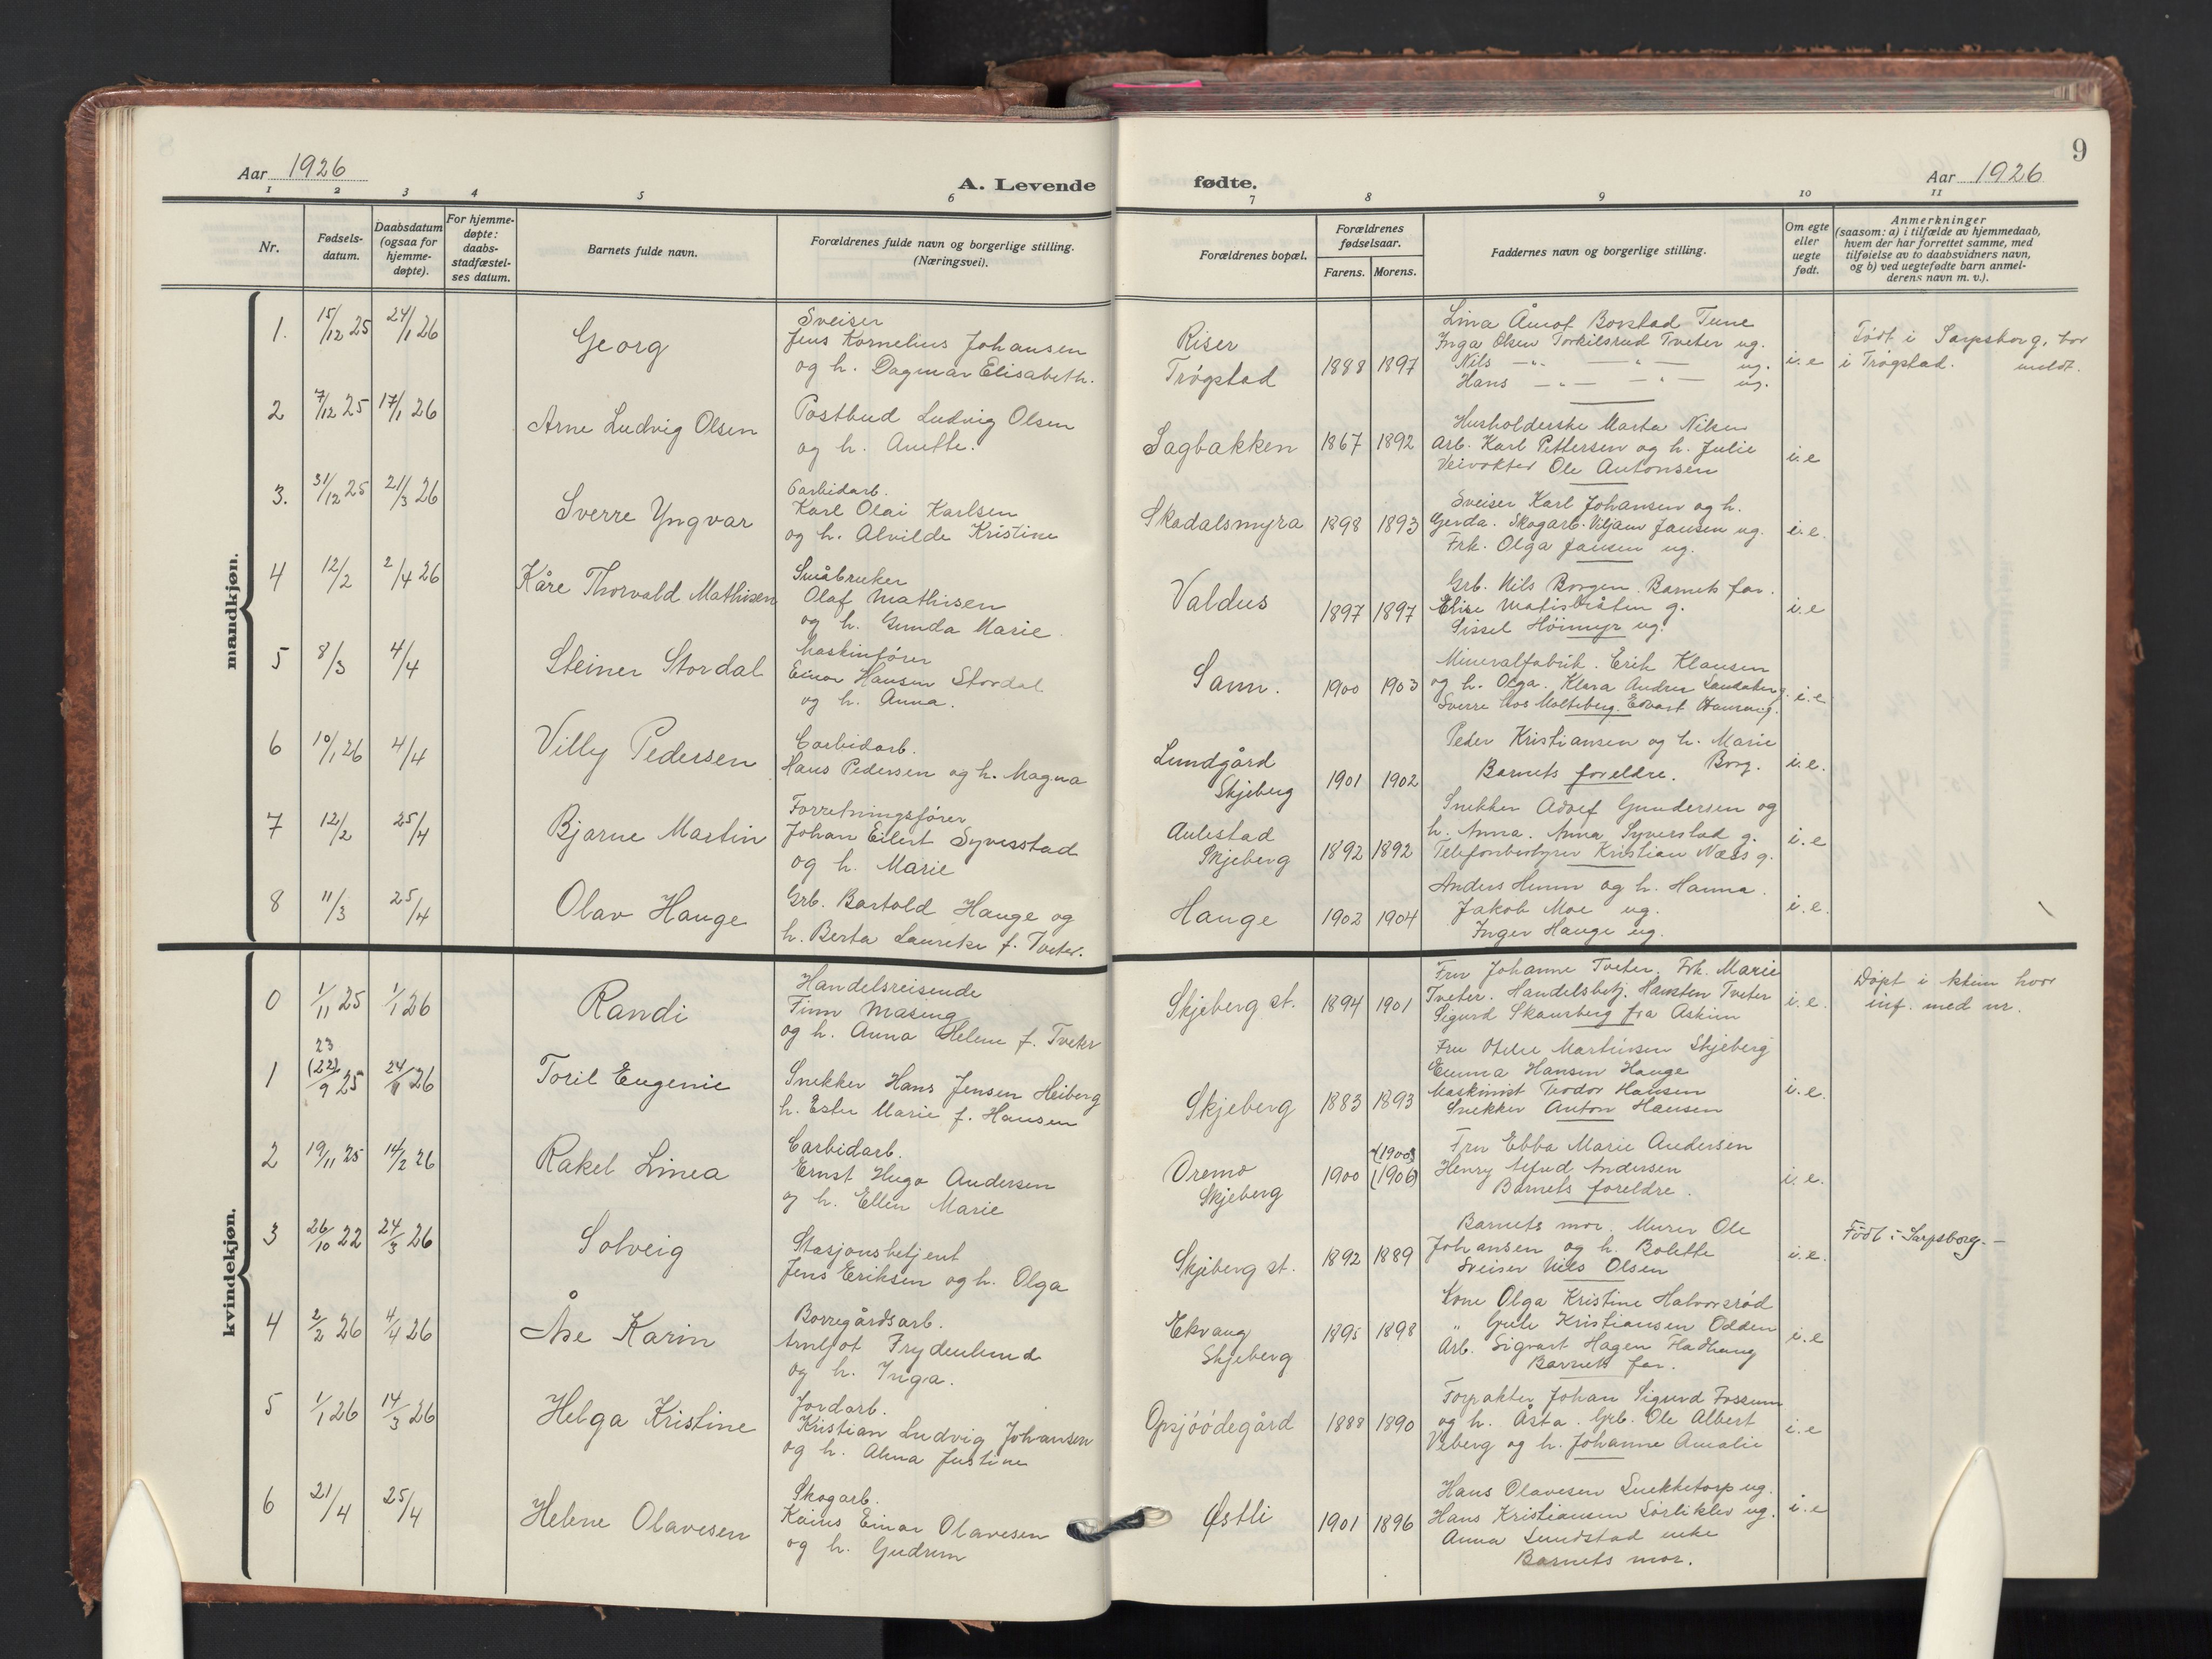 8
Aar 1926
A. Levende
1 2 3 4 5 6
Nr.
Fødsels-
datum.
Daabsdatum
(ogsaa for
hjemme-
døpte).
For hjemme-
døpte:
daabs-
stadfæstel-
ses datum.
Barnets fulde navn.
Forældrenes fulde navn og borgerlige stilling.
(Næringsvei).
mandkjøn.
1. 15/12 25 24/1 26 Georg
Sveiser
Jens Kornelius Johansen
og h. Dagmar Elisabeth.
2 7/12 25 17/1 26 Arne Ludvig Olsen
Postbud Ludvig Olsen
og h. Anette.
3. 31/12 25 21/3 26 Sverre Yngvar
Carbidarb.
Karl Olai Karlsen
og h. Alvilde Kristine
4 12/2 2/4 26 Kåre Thorvald Mathisen
Småbruker
Olaf Mathisen
og h. Gunda Marie
5 8/3 4/4 Steinar Stordal
Maskinfører
Einar Hansen Stordal
og h. Anna.
6 10/1 26 4/4 Villy Pedersen
Carbidarb.
Hans Pedersen og h. Magna
7 12/2 25/4 Bjarne Martin
Forretningsfører
Johan Eilert Syvesstad
og h. Marie
8 11/3 25/4 Olav Hauge
Grb. Bartold Hauge og
h. Berta Laurike f. Tveter.
kvindekjøn.
0 1/11 25 1/1 26 Randi
Handelsreisende
Finn Masing
og h. Anna Helene f. Tveter
23
1 (22)/9 25 24/1 26 Toril Eugenie
Snekker Hans Jensen Heiberg
h. Ester Marie f. Hansen
2 19/11 25 14/2 26 Rakel Linea
Carbidarb.
Ernst Hugo Andersen
og h. Ellen Marie
3 26/10 22 24/3 26 Solveig
Stasjonsbetjent
Jens Eriksen og h. Olga
4 2/2 26 4/4 26 Åse Karin
Borregårdsarb.
Arnljot Frydenlund
og h. Inga.
5 1/1 26 14/3 26 Helga Kristine
Jordarb.
Kristian Ludvig Johansen
og h. Alma Justine
6 21/4 25/4 Helene Olavesen
Skogarb.
Kaius Einar Olavesen
og h. Gudrun
9
fødte.
Aar 1926
7 8 9 10 11
Forældrenes bopæl.
Forældrenes
fødselsaar.
Farens. Morens.
Faddernes navn og borgerlige stilling.
Om egte
eller
uegte
født.
Anmerkninger
(saasom: a) i tilfælde av hjemmedaab,
hvem der har forrettet samme, med
tilføielse av to daabsvidners navn,
og b) ved uegtefødte barn anmel-
derens navn m. v.).
Riser
Trøgstad 1888 1897
Lina Åmot Borstad Tune
Inga Olsen Torkilsrud Tveter ug.
Nils — " — — " — ug.
Hans — " — — " — ug.
i. e
Født i Sarpsborg, bor
i Trøgstad. meldt.
Sagbakken 1867 1892
Husholderske Marta Nilsen
Arb. Karl Pettersen og h. Julie
Veivokter Ole Antonsen
i. e
Skadalsmyra 1898 1893
Sveiser Karl Johansen og h.
Gerda. Skogarb. Viljam Jansen ug.
Frk. Olga Jansen ug.
i. e.
Valdus 1897 1897
Grb. Nils Borgen. Barnets far.
Elise g.
Sissel Höimyr ug.
i. e
Sann. 1900 1903
Mineralfabrik. Erik Klausen
og h. Olga. Klara Andrea g.
Sverre Molteberg. Edvart Hansen ug.
i. e
Lundgård
Skjeberg 1901 1902
Peder Kristiansen og h. Marie
Borg.
Barnets foreldre.
i. e.
Aulestad
Skjeberg 1892 1892
Snekker Adolf Gundersen og
h. Anna. Anna Syverstad g.
Telefonbestyrer Kristian Næss g.
i. e
Hauge 1902 1904
Anders Hunn og h. Hanna.
Jakob Moe ug.
Inger Hauge ug.
i. e.
Skjeberg st. 1894 1901
Fru Johanne Tveter. Frk. Marie
Tveter. Handelsbetj. Karsten Tveter
Sigurd Skansberg fra Askim
i. e.
Døpt i kirken hvor
inf. med nr.
Skjeberg 1883 1893
Fru Otelie Martinsen Skjeberg
Emma Hansen Hauge
Maskinist Teodor Hansen
Snekker Anton Hansen
i. e.
Oremo
Skjeberg 1900 (1900)
(1906)
Fru Ebba Marie Andersen
Henry Alfred Andersen
Barnets foreldre.
i. e.
Skjeberg st. 1892 1889
Barnets mor. Murer Ole
Johansen og h. Bolette
Sveiser Nils Olsen
i. e.
Født i Sarpsborg. -
Ekvang
Skjeberg 1895 1898
Kone Olga Kristine Halvorsrød
" Gule Kristiansen Odden
Arb. Sigvart Hagen
Barnets far.
i. e
Opsjöödegård 1888 1890
Forpakter Johan Sigurd Fossum
og h. Åsta. Grb. Ole Albert
Veberg og h. Johanne Amalie
i. e
Østli 1901 1896
Hans Olavesen Snekketorp ug.
Hans Kristiansen Sørliklev ug.
Anna Lundstad enke
Barnets mor.
i. e